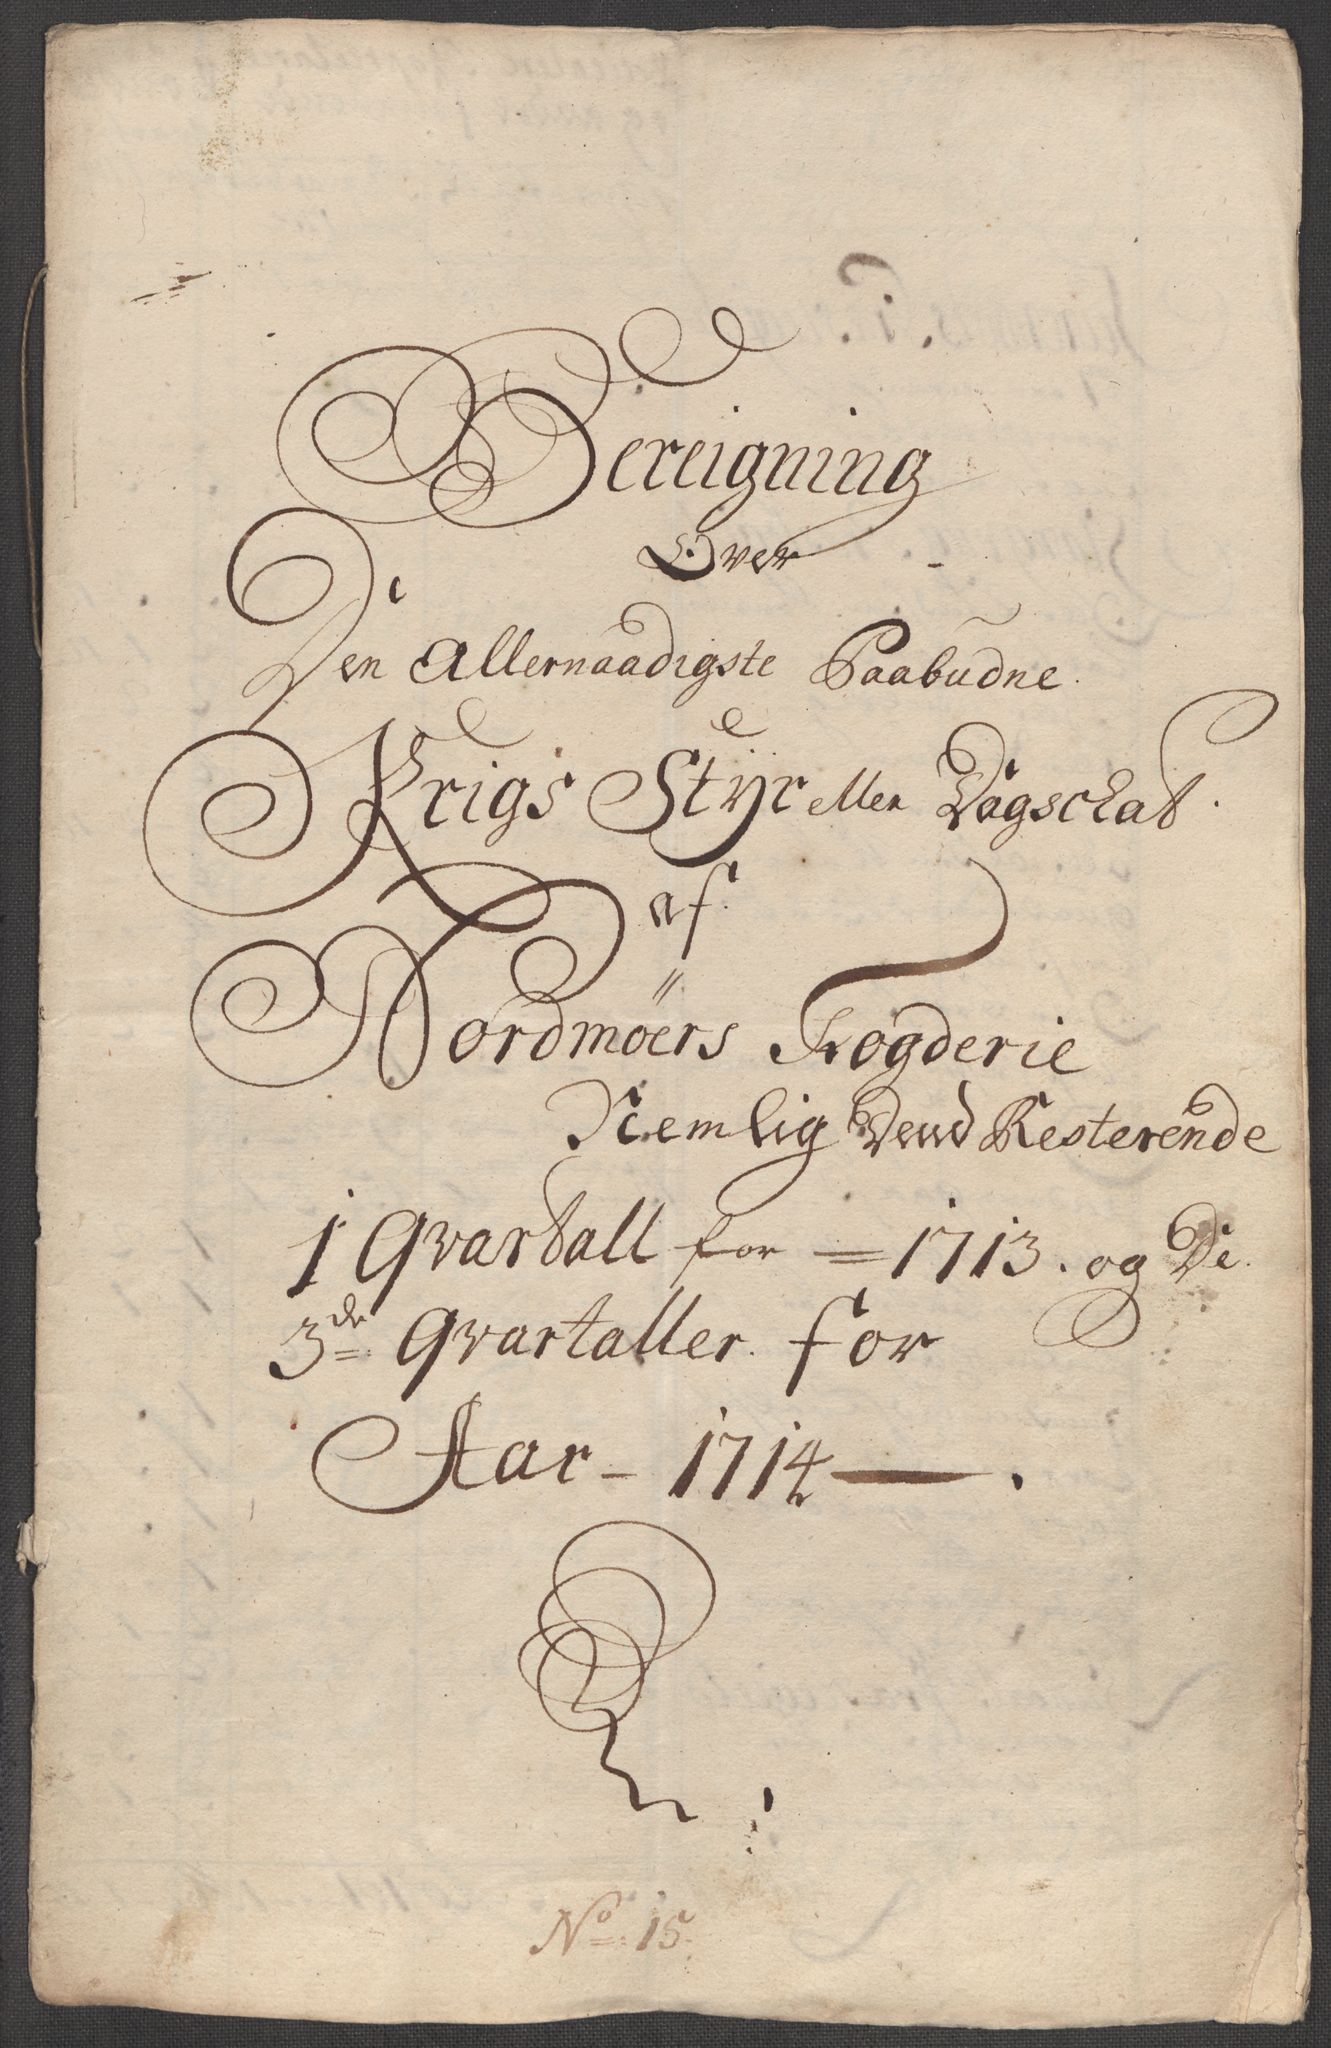 Bereigning
Over
Den Allernaadigste Paabudne
Krigs Styr eller Dagschat
af
Nordmöers Fogderie
Nemlig Dend Resterende
1 Qvartall for = 1713. og De
3de Qvartaller for
Aar - 1714 —.
No. 15